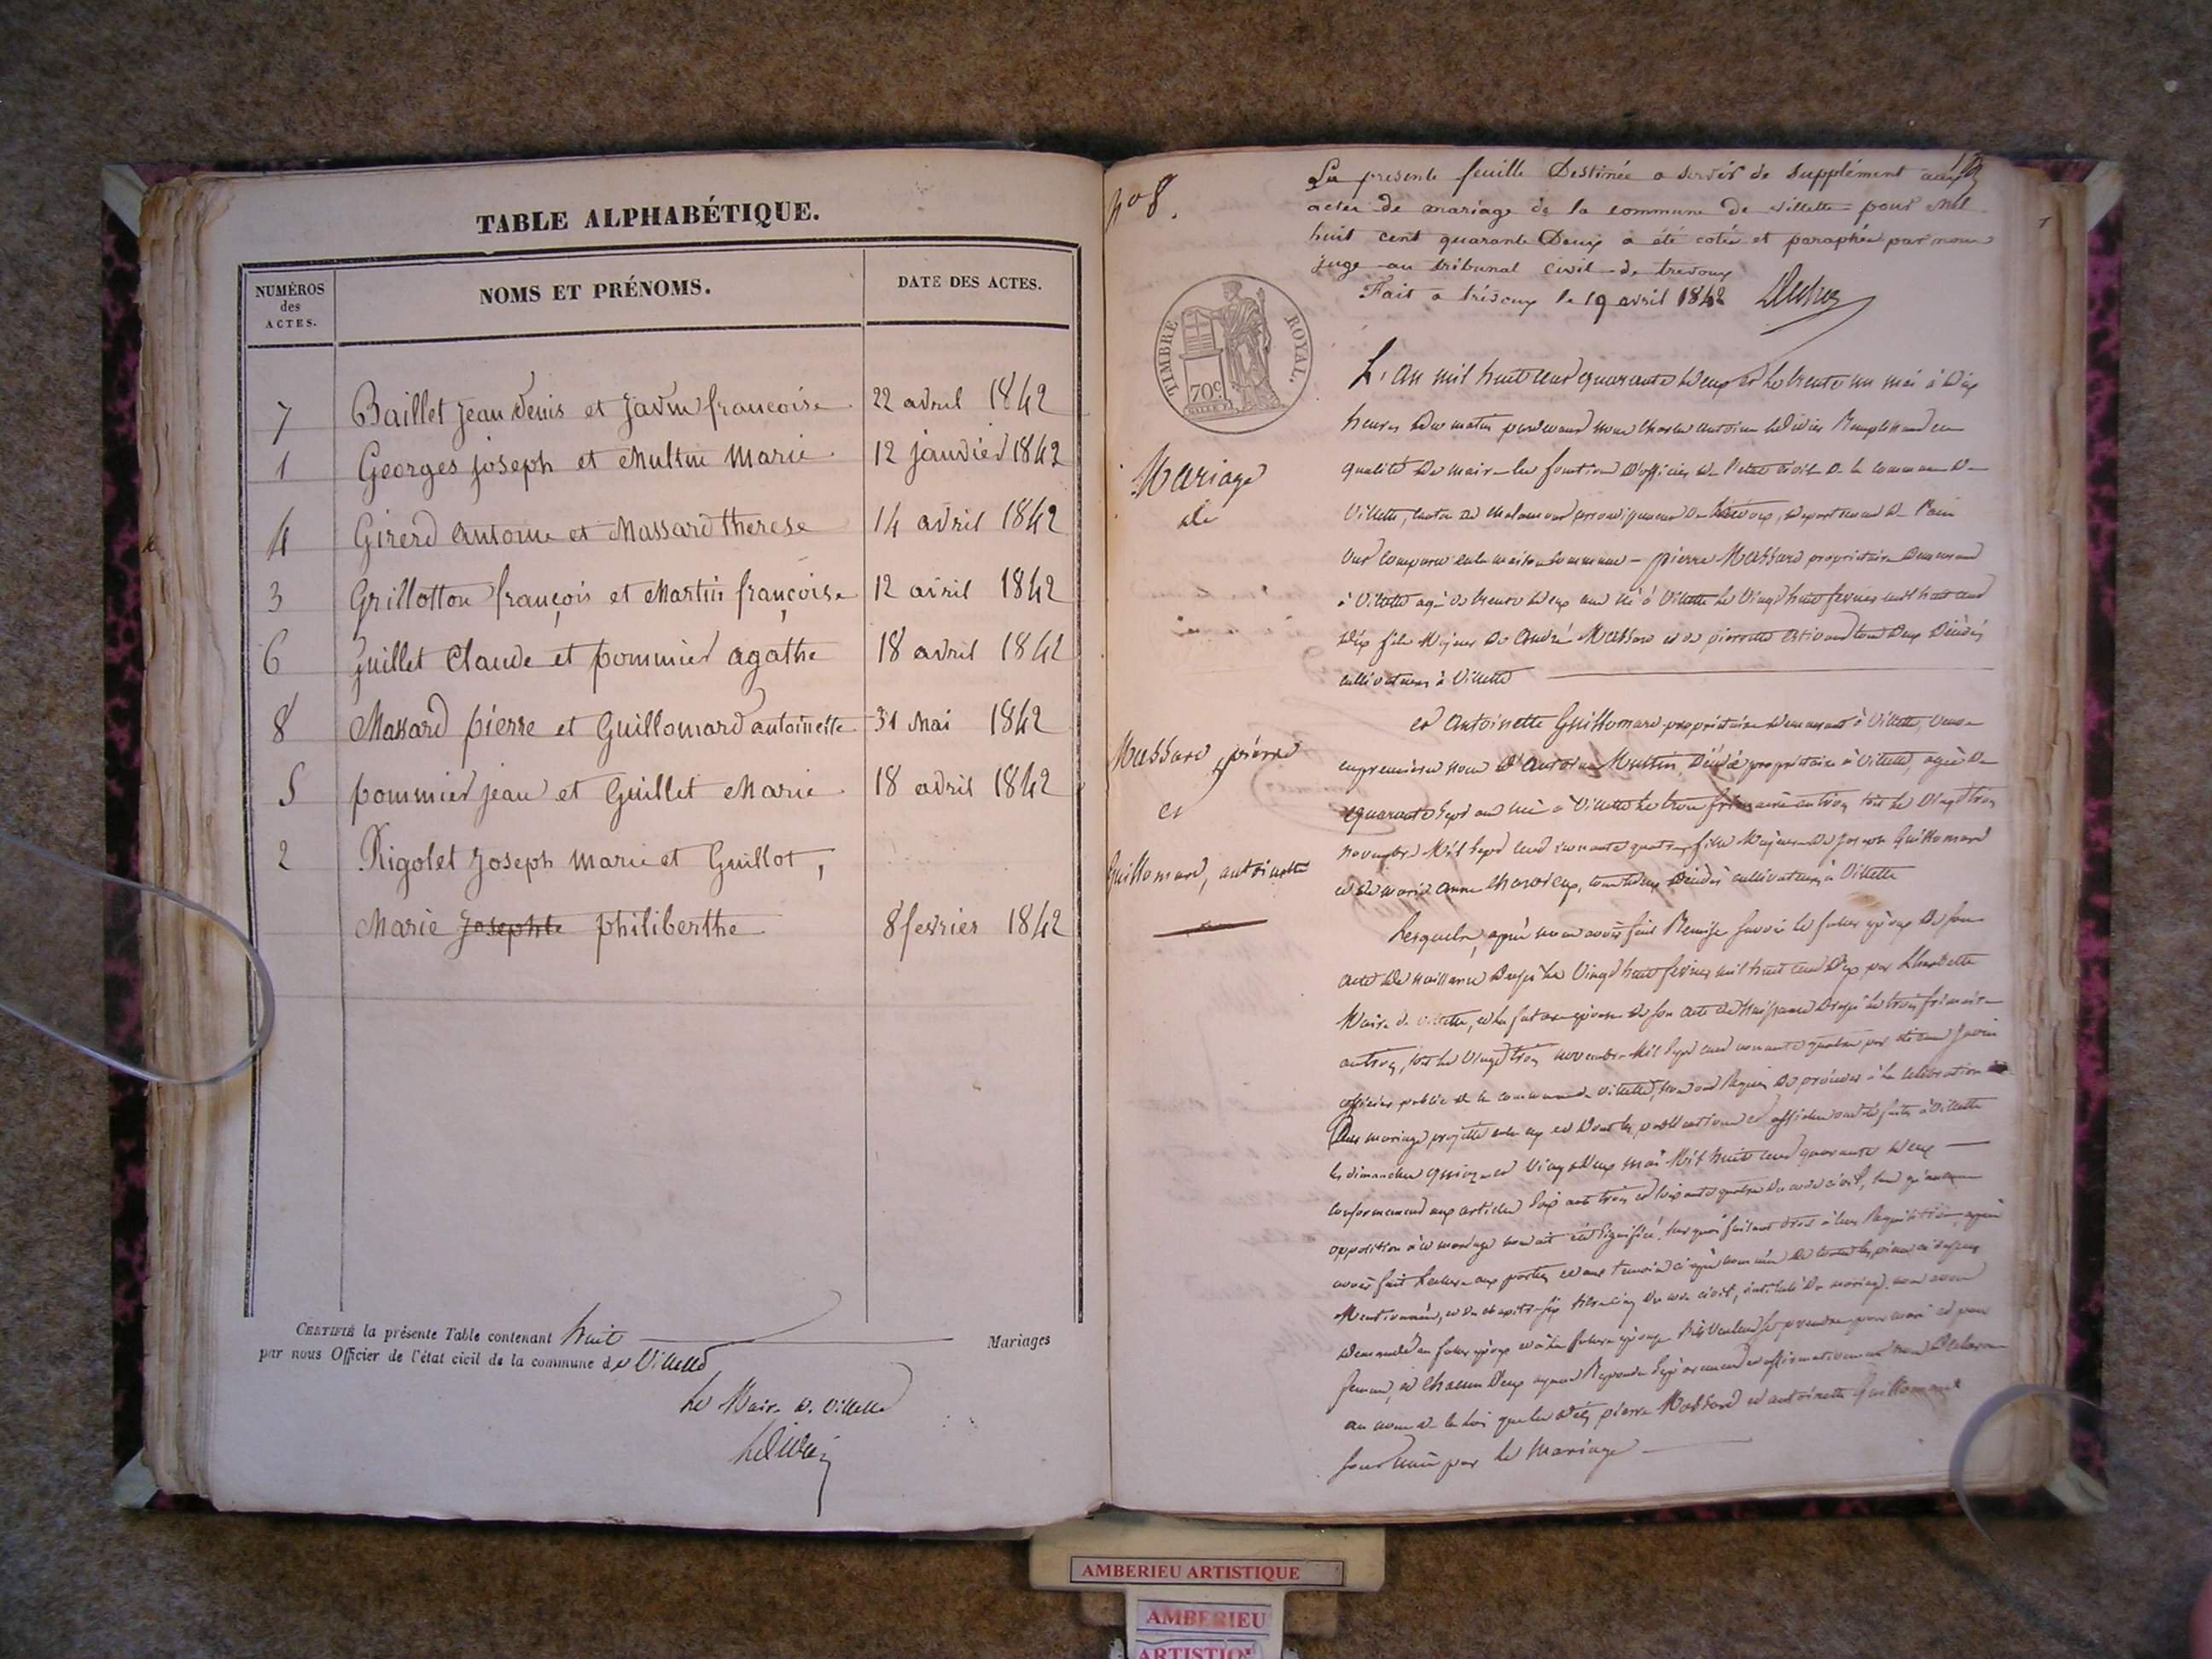 TABLE ALPHABÉTIQUE.
NUMÉROS des ACTES.
NOMS ET PRÉNOMS.
DATE DES ACTES.
7 Baillet jean denis et Javin françoise 22 avril 1842
1 Georges joseph et Multin Marie 12 janvier 1842
4 Girerd Antoine et Massard therese 14 avril 1842
3 Grillotton françois et Martin françoise 12 avril 1842
6 Guillet Claude et pommier agathe 18 avril 1842
8 Massard pierre et Guillomard antoinette 31 Mai 1842
5 pommier jean et Guillet Marie 18 avril 1842
2 Rigolet Joseph Marie et Guillot,
Marie Josephte philiberthe 8 fevrier 1842
CERTIFIÉ la présente Table contenant huit Mariages
par nous Officier de l'état civil de la commune de Villette
Le Maire de Villette
nº 8.
La presente feuille Destinée a servir de Supplément aux
actes de mariage de la commune de Villette pour Mil
huit cent quarante Deux a été cotée et paraphée par nous
juge au tribunal civil de trevoux
Fait a trévoux le 19 avril 1842
TIMBRE ROYAL.
70c.
Mariage
de
Massard, pierre
et
Guillomard, antoinette
L'an mil huit cent quarante deux et le trente un mai à dix
heures du matin pardevant nous Charles antoine Remplissant en
qualité de maire les fonctions d'officier de l'état civil de la commune de
Villette, canton de chalamont arrondissement de trévoux, departement de l'ain
ont comparu en la maison commune pierre Massard propriétaire demeurant
à Villette agé de trente deux ans né à Villette le vingt huit fevrier mil huit cent
dix fils Majeur de andré Massard et de pierrette tous deux décédés
cultivateurs à Villette
et antoinette Guillomard propriétaire demeurant à Villette, veuve
en premières noces d'antoine Multin, décédé propriétaire à Villette, agée de
quarante sept ans née à Villette le trois frimaire an trois soit le vingt trois
novembre Mil sept cent nonante quatre fille Majeure de joseph Guillomard
et de marie anne tous deux décédés cultivateurs à Villette
Lesquels, après nous avoir fait Remise savoir le futur époux de son
acte de naissance du vingt huit fevrier mil huit cent dix par
Maire de Villette, et la future épouse de son acte de Naissance le trois frimaire
an trois, soit le vingt trois novembre Mil sept cent nonante quatre par Javin
officier public de la commune de Villette, nous ont Requis de procéder à la célébration
du mariage projetté entre eux et dont les publications et affiches ont été faites à Villette
les dimanches quinze et vingt deux mai Mil huit cent quarante deux
conformement aux articles soixante trois et soixante quatre du code civil, sans qu'aucune
opposition à ce mariage nous ait été signifiée. sur quoi faisant droit à leur Requisition, après
avoir fait Lecture aux parties et aux temoins ci après nommés de toutes les pièces ci dessus
Mentionnées, et du chapitre six titre cinq du code civil, intitulé du mariage. nous avons
demandé au futur époux et à la future épouse s'ils veulent se prendre pour mari et pour
femme, et chacun d'eux ayant Repondu séparement et affirmativement nous declarons
au nom de la loi que les dits pierre Massard et antoinette Guillomard
sont unis par le Mariage
AMBERIEU ARTISTIQUE
AMBERIEU